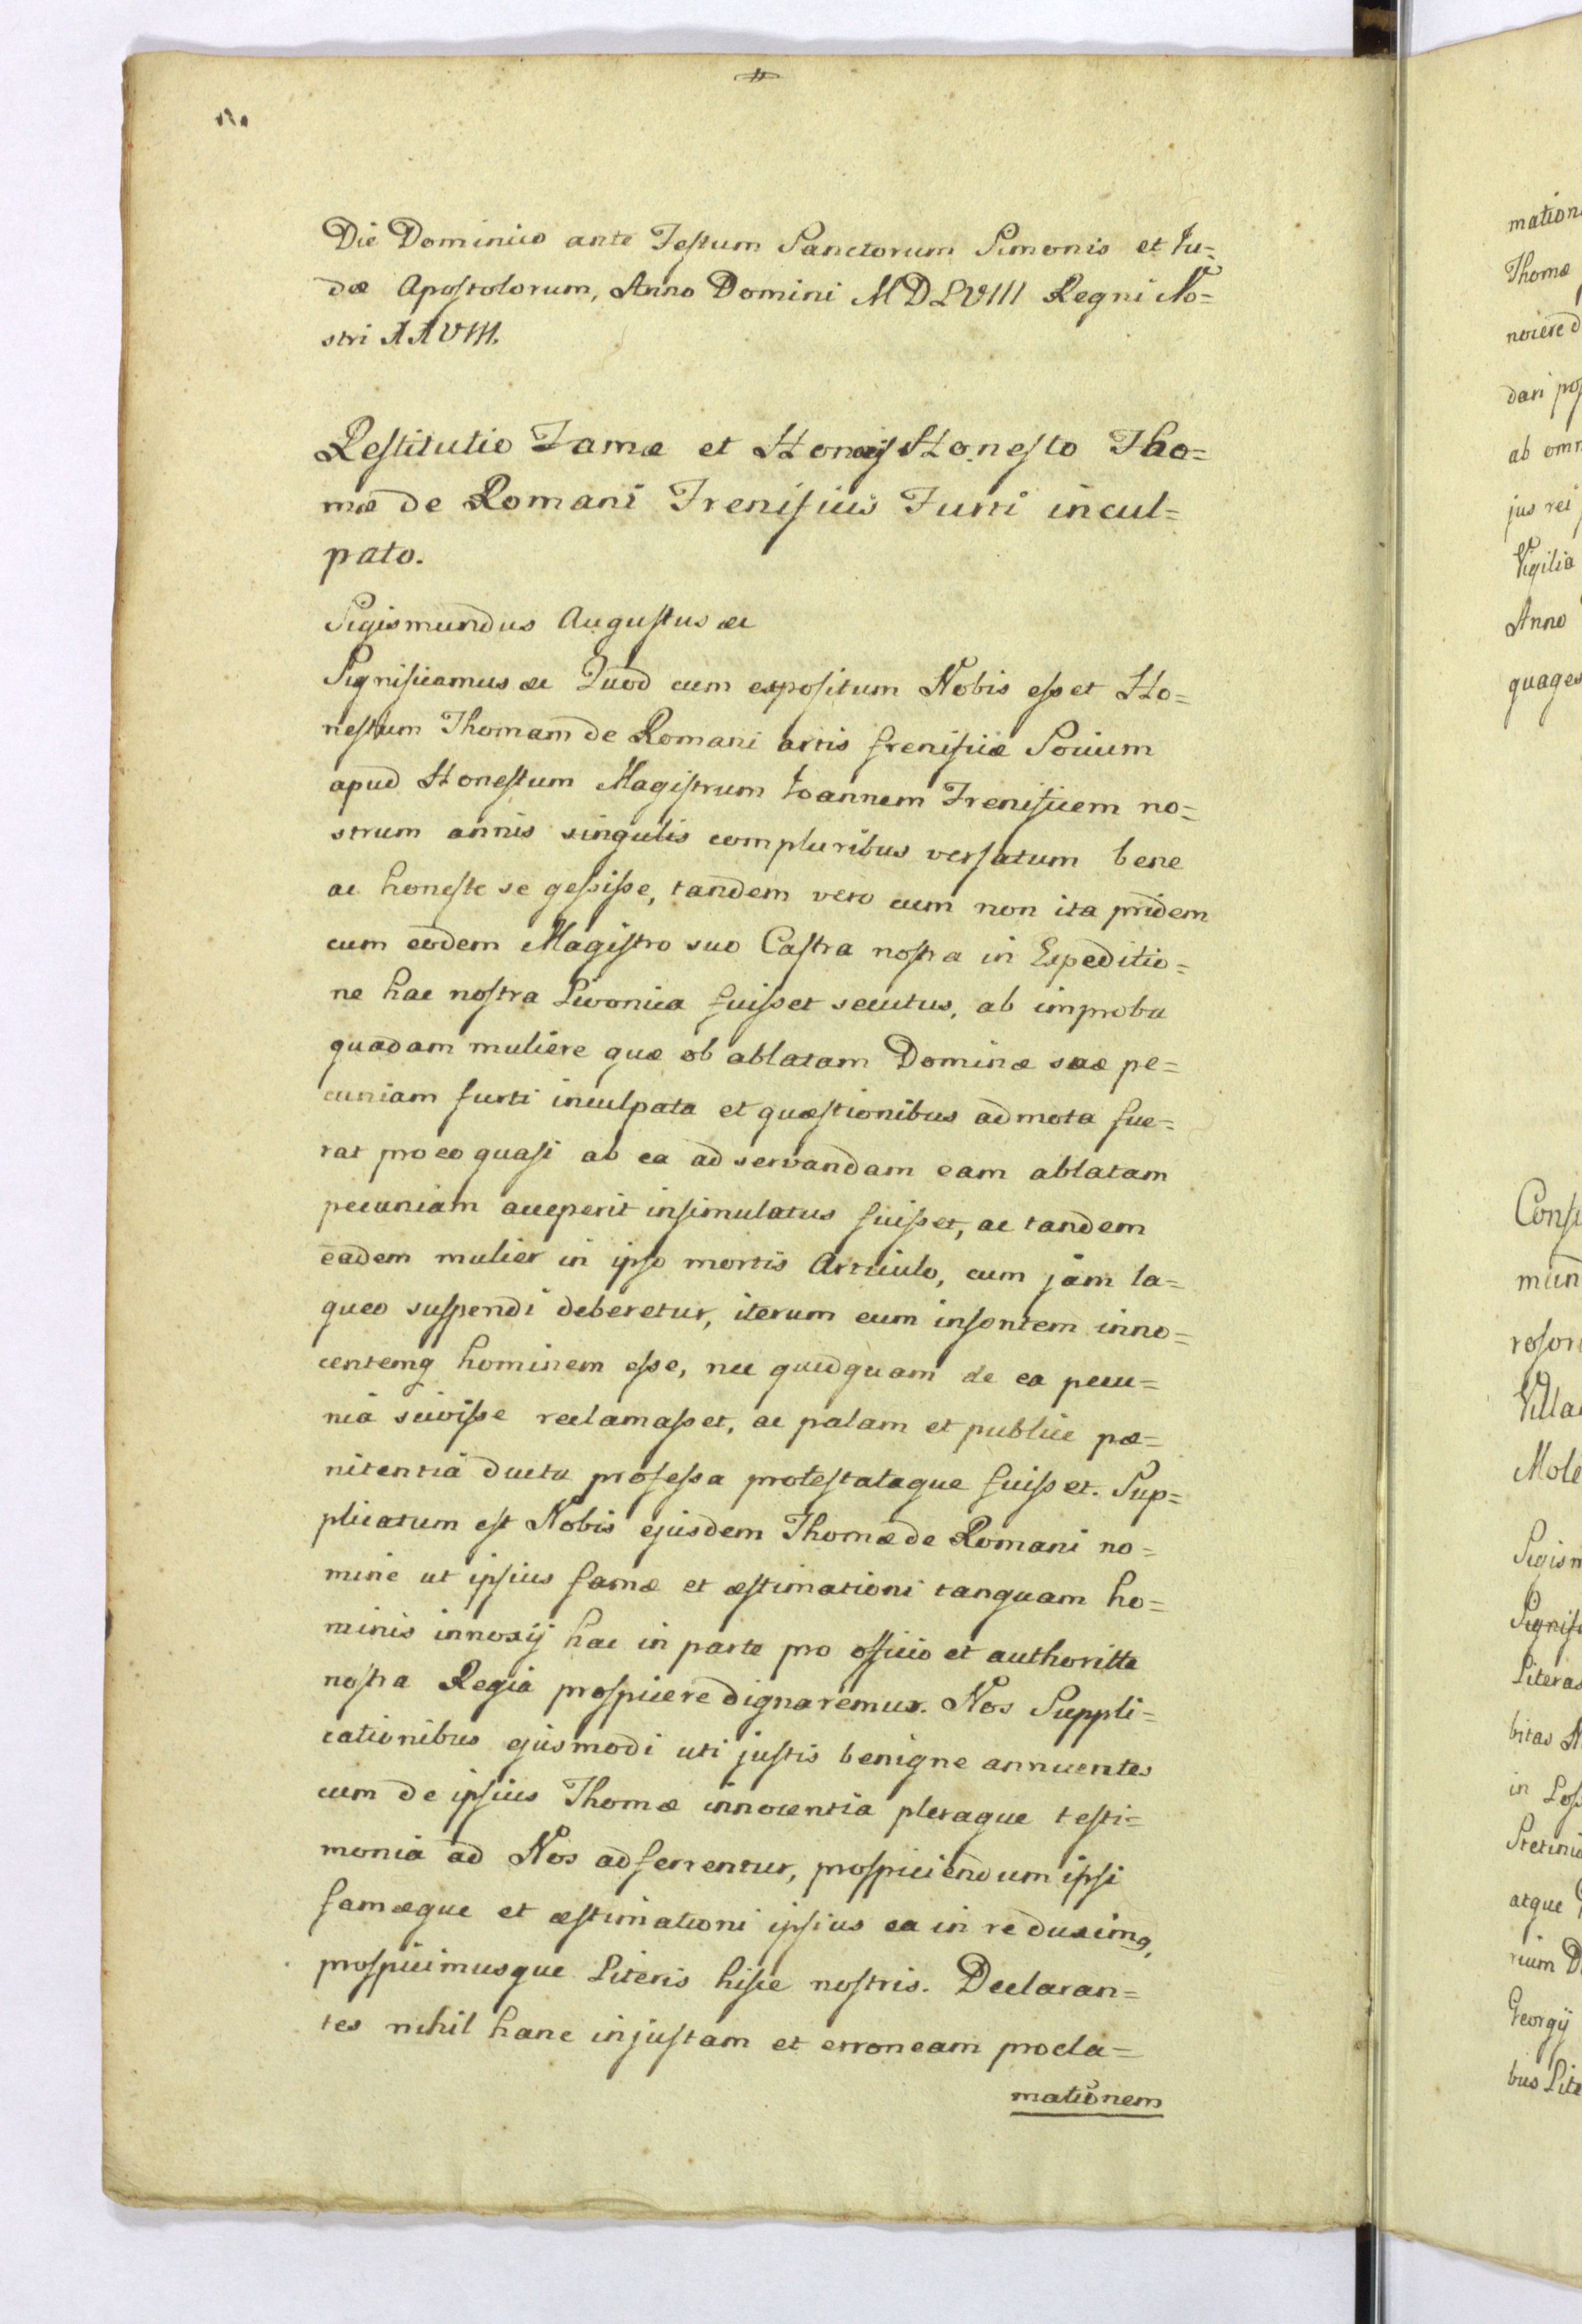 Die Dominico ante Festum Sanctorum Simonis et Ju=
dæ Apostolorum, Anno Domini MDLVIII Regni No=
stri XXVIII.
Restitutio Famæ et Honoris Honesto Tho=
mæ de Romani Frenificis Furti incul=
pato.
Sigismundus Augustus &c
Significamus &c Quod cum expositum Nobis esset Ho=
nestum Thomam de Romani artis frenificiæ Socium
apud Honestum Magistrum Joannem Frenificem no=
strum annis singulis compluribus versatum bene
ac honeste se gessisse, tandem vero cum non ita pridem
cum eodem Magistro suo Castra nostra in Expeditio=
ne hac nostra Livonica fuisset secutus, ab improba
quadam muliere quæ ob ablatam Dominæ suæ pe=
cuniam furti inculpata et quæstionibus admota fue=
rat pro eo quasi ab ea ad servandam eam ablatam
pecuniam acceperit insimulatus fuisset, ac tandem
eadem mulier in ipso mortis Articulo, cum jam la=
queo suspendi deberetur, iterum eum insontem inno=
centemq hominem esse, nec quidquam de ea pecu=
nia scivisse reclamasset, ac palam et publice pæ=
nitentia ducta professa protestataque fuisset. Sup=
plicatum est Nobis ejusdem Thomæ de Romani no=
mine ut ipsius famæ et æstimationi tanquam ho=
minis innoxij hac in parte pro officio et authoritte
nostra Regia prospicere dignaremur. Nos Suppli=
cationibus ejusmodi uti justis benigne annuentes
cum de ipsius Thomæ innocentia pleraque testi=
monia ad Nos adferrentur, prospiciendum ipsi
famæque et æstimationi ipsius ea in re duximq,
prospicimusque Literis hisce nostris. Declaran=
tes nihil hanc injustam et erroneam procla=
mationem
mation
Thomæ
nocere d
dari pos
ab omn
jus rei
Vigilia
Anno
quages
Conse
mun
roson
Villa
Mole
Sigism
Signifi
Literas
bitas N
in Los
Stetinio
atque
rium D
Georgij
bus Lite